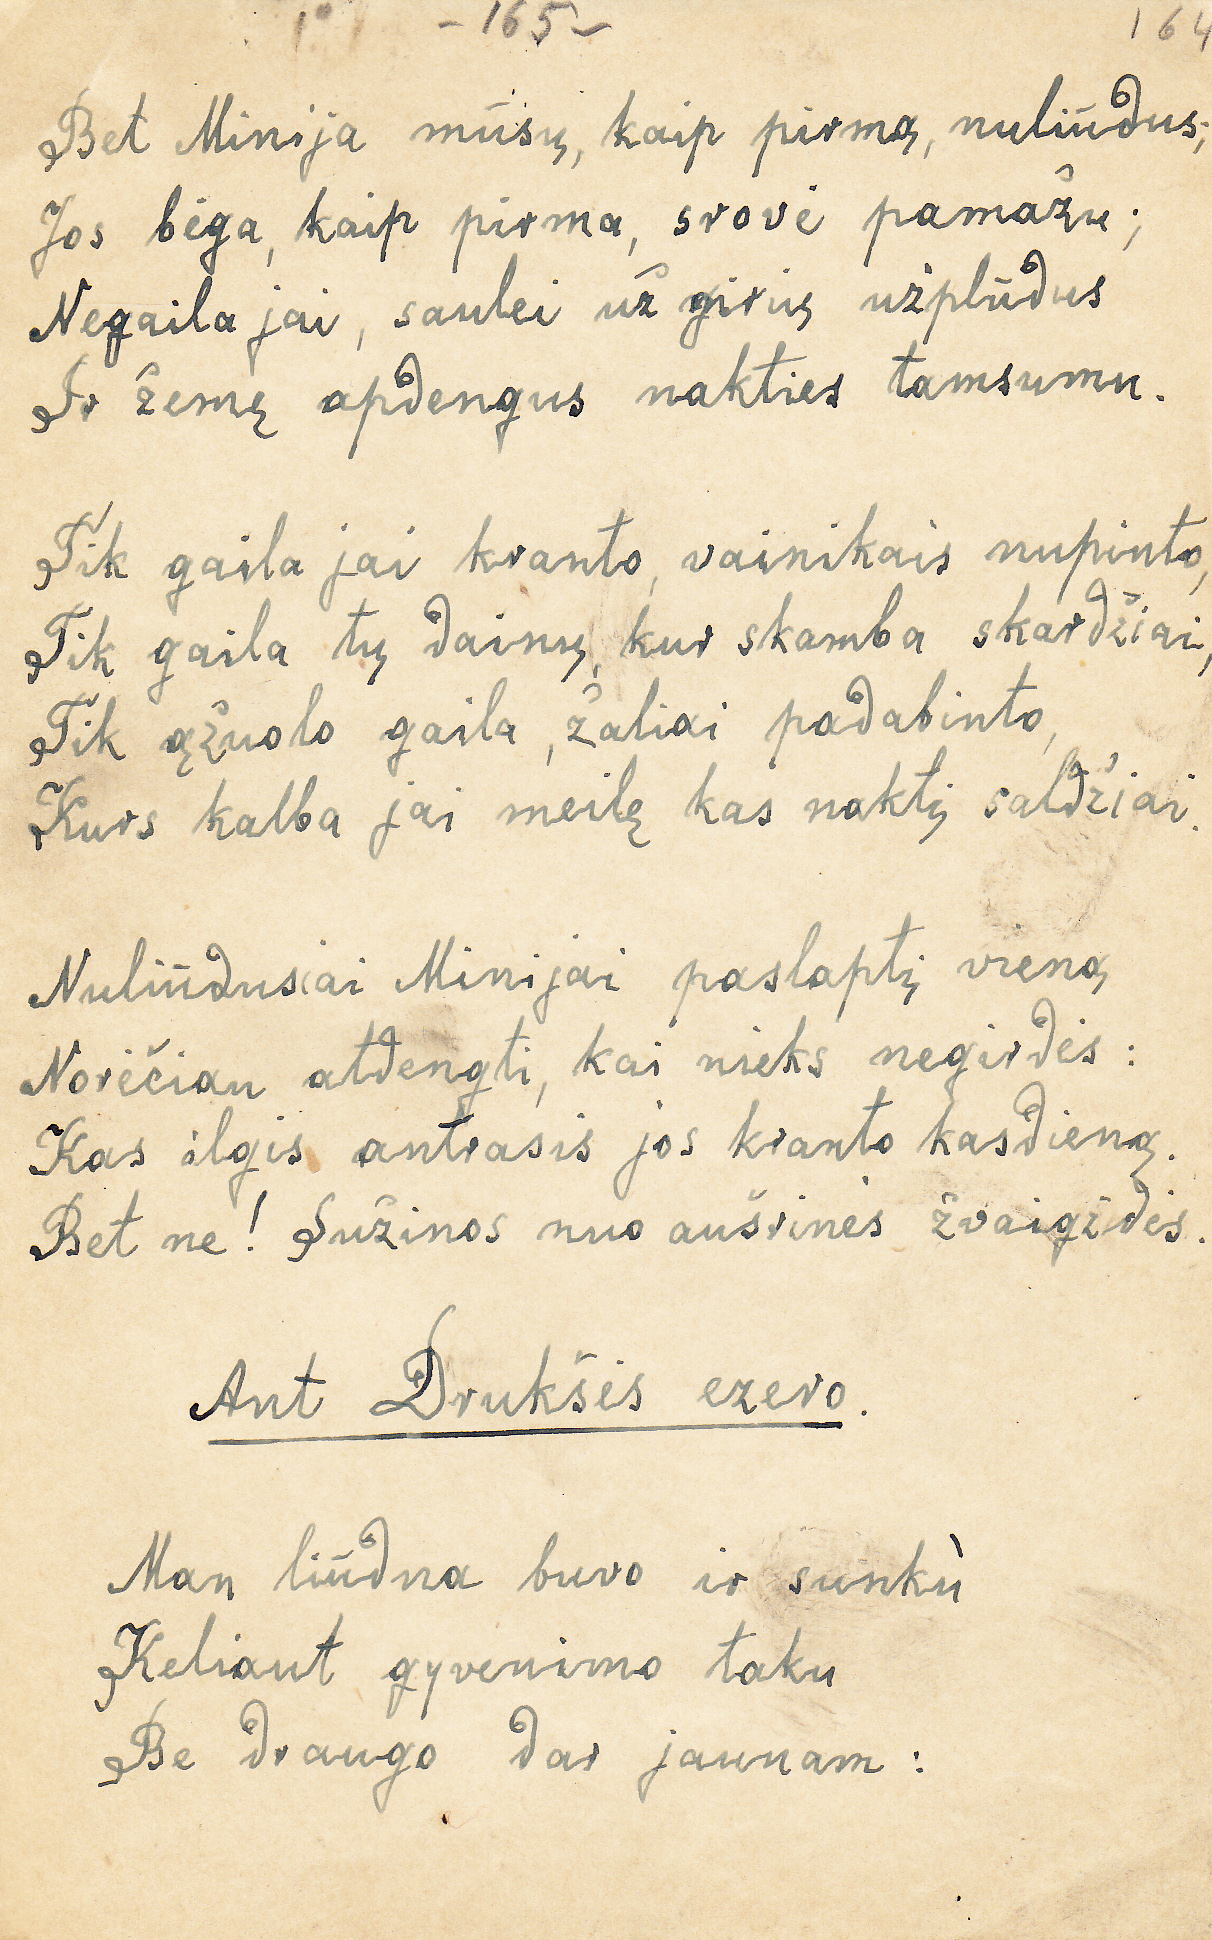 -165-
164
Bet Minija mūsų, kaip pirmą, nuliūdus;
Jos bėga, kaip pirma, srovė pamažu;
Negaila jai, saulei už girių užplūdus
Ir žemę apdengus nakties tamsumu.
Tik gaila jai kranto, vainikais nupinto,
Tik gaila tų dainų, kur skamba skardžiai,
Tik ąžuolo gaila, žaliai padabinto,
Kurs kalba jai meilę kas naktį saldžiai.
Nuliūdusiai Minijai paslaptį vieną
Norėčiau atdengti, kai nieks negirdės:
Kas ilgis antrasis jos kranto kasdieną.
Bet ne! Sužinos nuo aušrinės žvaigždės.
Ant Drukšės ezero.
Man liūdna buvo ir sunkù
Keliaut gyvenimo taku
Be draugo dar jaunam: